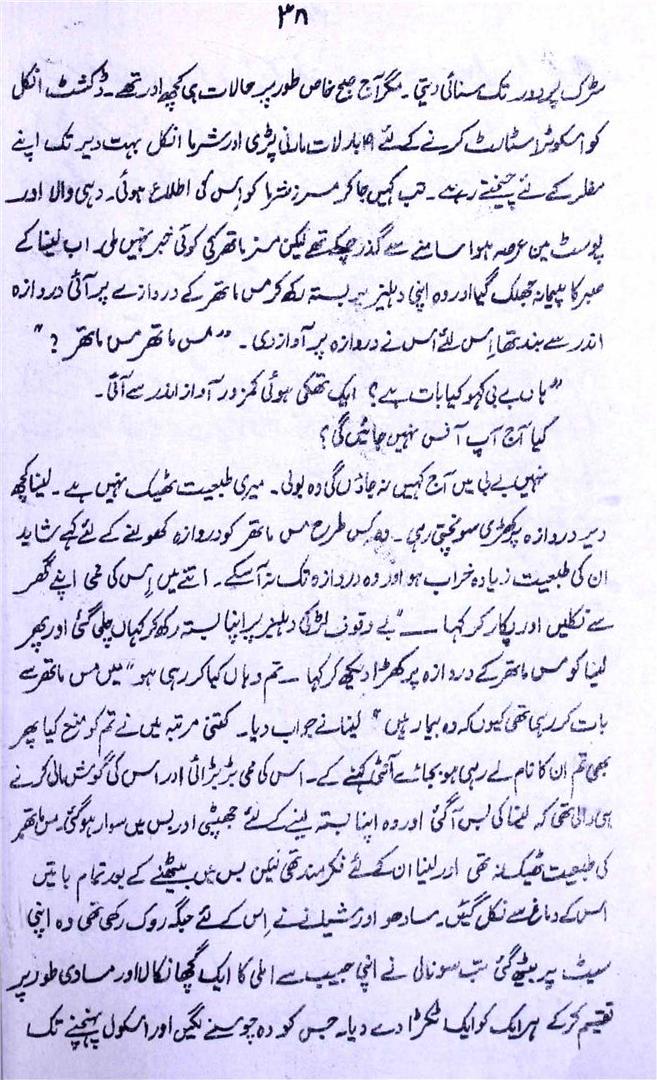 ۳۸
سڑک پر دور تک سنائی دیتی۔ مگر آج صبح خاص طور پر حالات ہی کچھ اور تھے۔ ڈکشٹ انکل
کو اسکوٹر اسٹارٹ کرنے کے لئے ۴۹ بار لات مارنی پڑی اور شرما انکل بہت دیر تک اپنے
مفلر کے لئے چیختے رہے۔ تب کہیں جا کر مسز شرما کو اس کی اطلاع ہوئی۔ دہی والا اور
پوسٹ مین عرصہ ہوا سامنے سے گذر چکے تھے لیکن مس ماتھر کی کوئی خبر نہیں ملی۔ اب لینا کے
صبر کا پیمانہ چھلک گیا اور وہ اپنی دہلیز پر بستہ رکھ کر مس ماتھر کے دروازے پر آئی دروازہ
اندر سے بند تھا اس لئے اس نے دروازہ پر آواز دی۔ "مس ماتھر مس ماتھر ؟"
"ہاں بے بی کہو کیا بات ہے؟ ایک تھکی ہوئی کمزور آواز اندر سے آئی۔
کیا آج آپ آفس نہیں جائیں گی؟
نہیں بے بی میں آج کہیں نہ جاؤں گی وہ بولی۔ میری طبیعت ٹھیک نہیں ہے۔ لینا کچھ
دیر دروازہ پر کھڑی سونچتی رہی۔ وہ کس طرح مس ماتھر کو دروازہ کھولنے کے لئے کہے شاید
ان کی طبیعت زیادہ خراب ہو اور وہ دروازہ تک نہ آسکے۔ اتنے میں اس کی ممی اپنے گھر
سے نکلیں اور پکار کر کہا — "بے وقوف لڑکی دہلیز پر اپنا بستہ رکھ کر کہاں چلی گئی اور پھر
لینا کو مس ماتھر کے دروازہ پر کھڑا دیکھ کر کہا — تم وہاں کیا کر رہی ہو "میں مس ماتھر سے
بات کر رہی تھی کیوں کہ وہ بیمار ہیں" لینا نے جواب دیا۔ کتنی مرتبہ میں نے تم کو منع کیا پھر
بھی تم ان کا نام لے رہی ہو بجائے آنٹی کہنے کے۔ اس کی ممی بڑبڑائی اور اس کی گوش مالی کرنے
ہی والی تھی کہ لینا کی بس آگئی اور وہ اپنا بستہ لینے کے لئے جھپٹی اور بس میں سوار ہو گئی۔ مس ماتھر
کی طبیعت ٹھیک نہ تھی اور لینا ان کے لئے فکر مند تھی لیکن بس میں بیٹھنے کے بعد تمام باتیں
اس کے دماغ سے نکل گئیں۔ سادھو اور شیلا نے اس کے لئے جگہ روک رکھی تھی وہ اپنی
سیٹ پر بیٹھ گئی تب سونالی نے اپنی جیب سے املی کا ایک گچھا نکالا اور مساوی طور پر
تقسیم کر کے ہر ایک کو ایک ٹکڑا دے دیا۔ جس کو وہ چوسنے لگیں اور اسکول پہنچنے تک